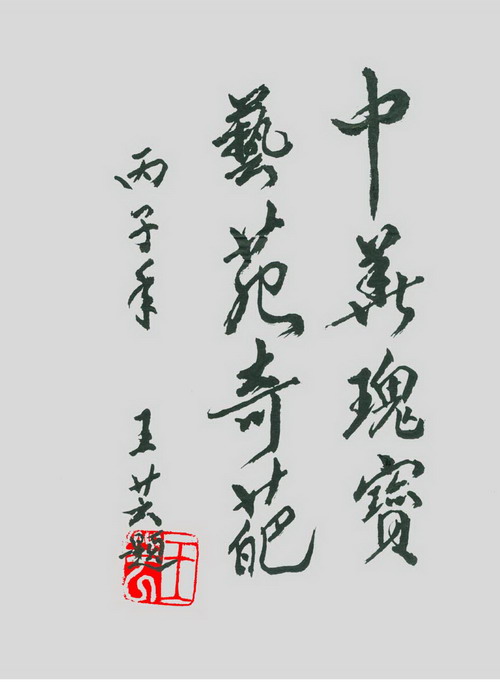 中華瑰寶
藝苑奇葩
丙子年
王 題
王